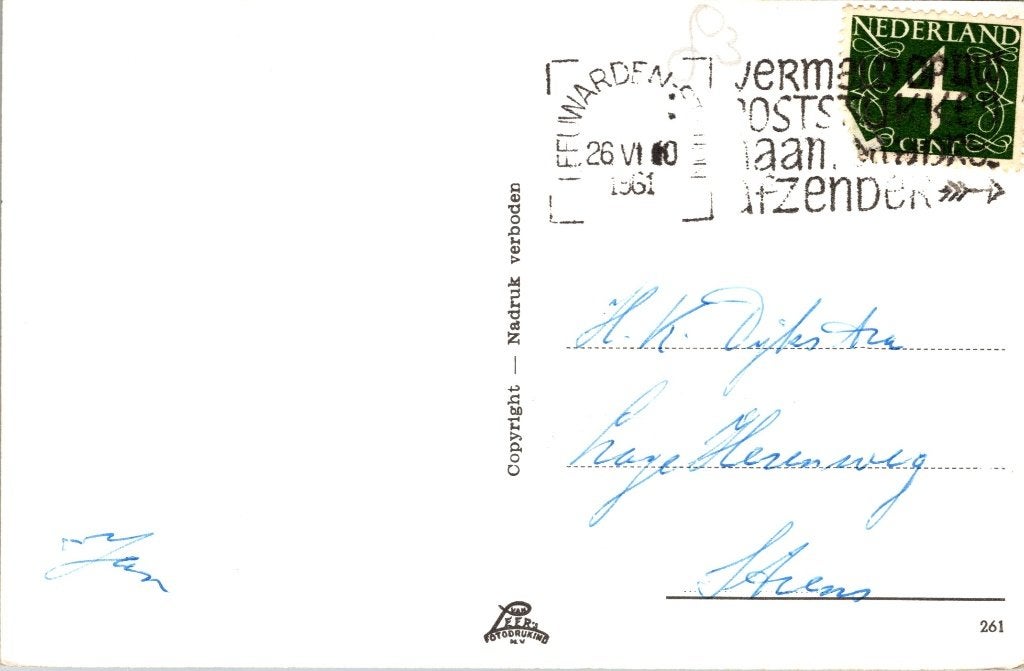 NEDERLAND
4
CENT
LEEUWARDEN
26 VI 10
1961
VERMELD OP UW
POSTSTUKKEN
naam, en adres
afzender
Copyright — Nadruk verboden
H. K. Dijkstra
Lage Herenweg
St Arens
Jan
VAN
LEER's
FOTODRUKIND
N.V
261